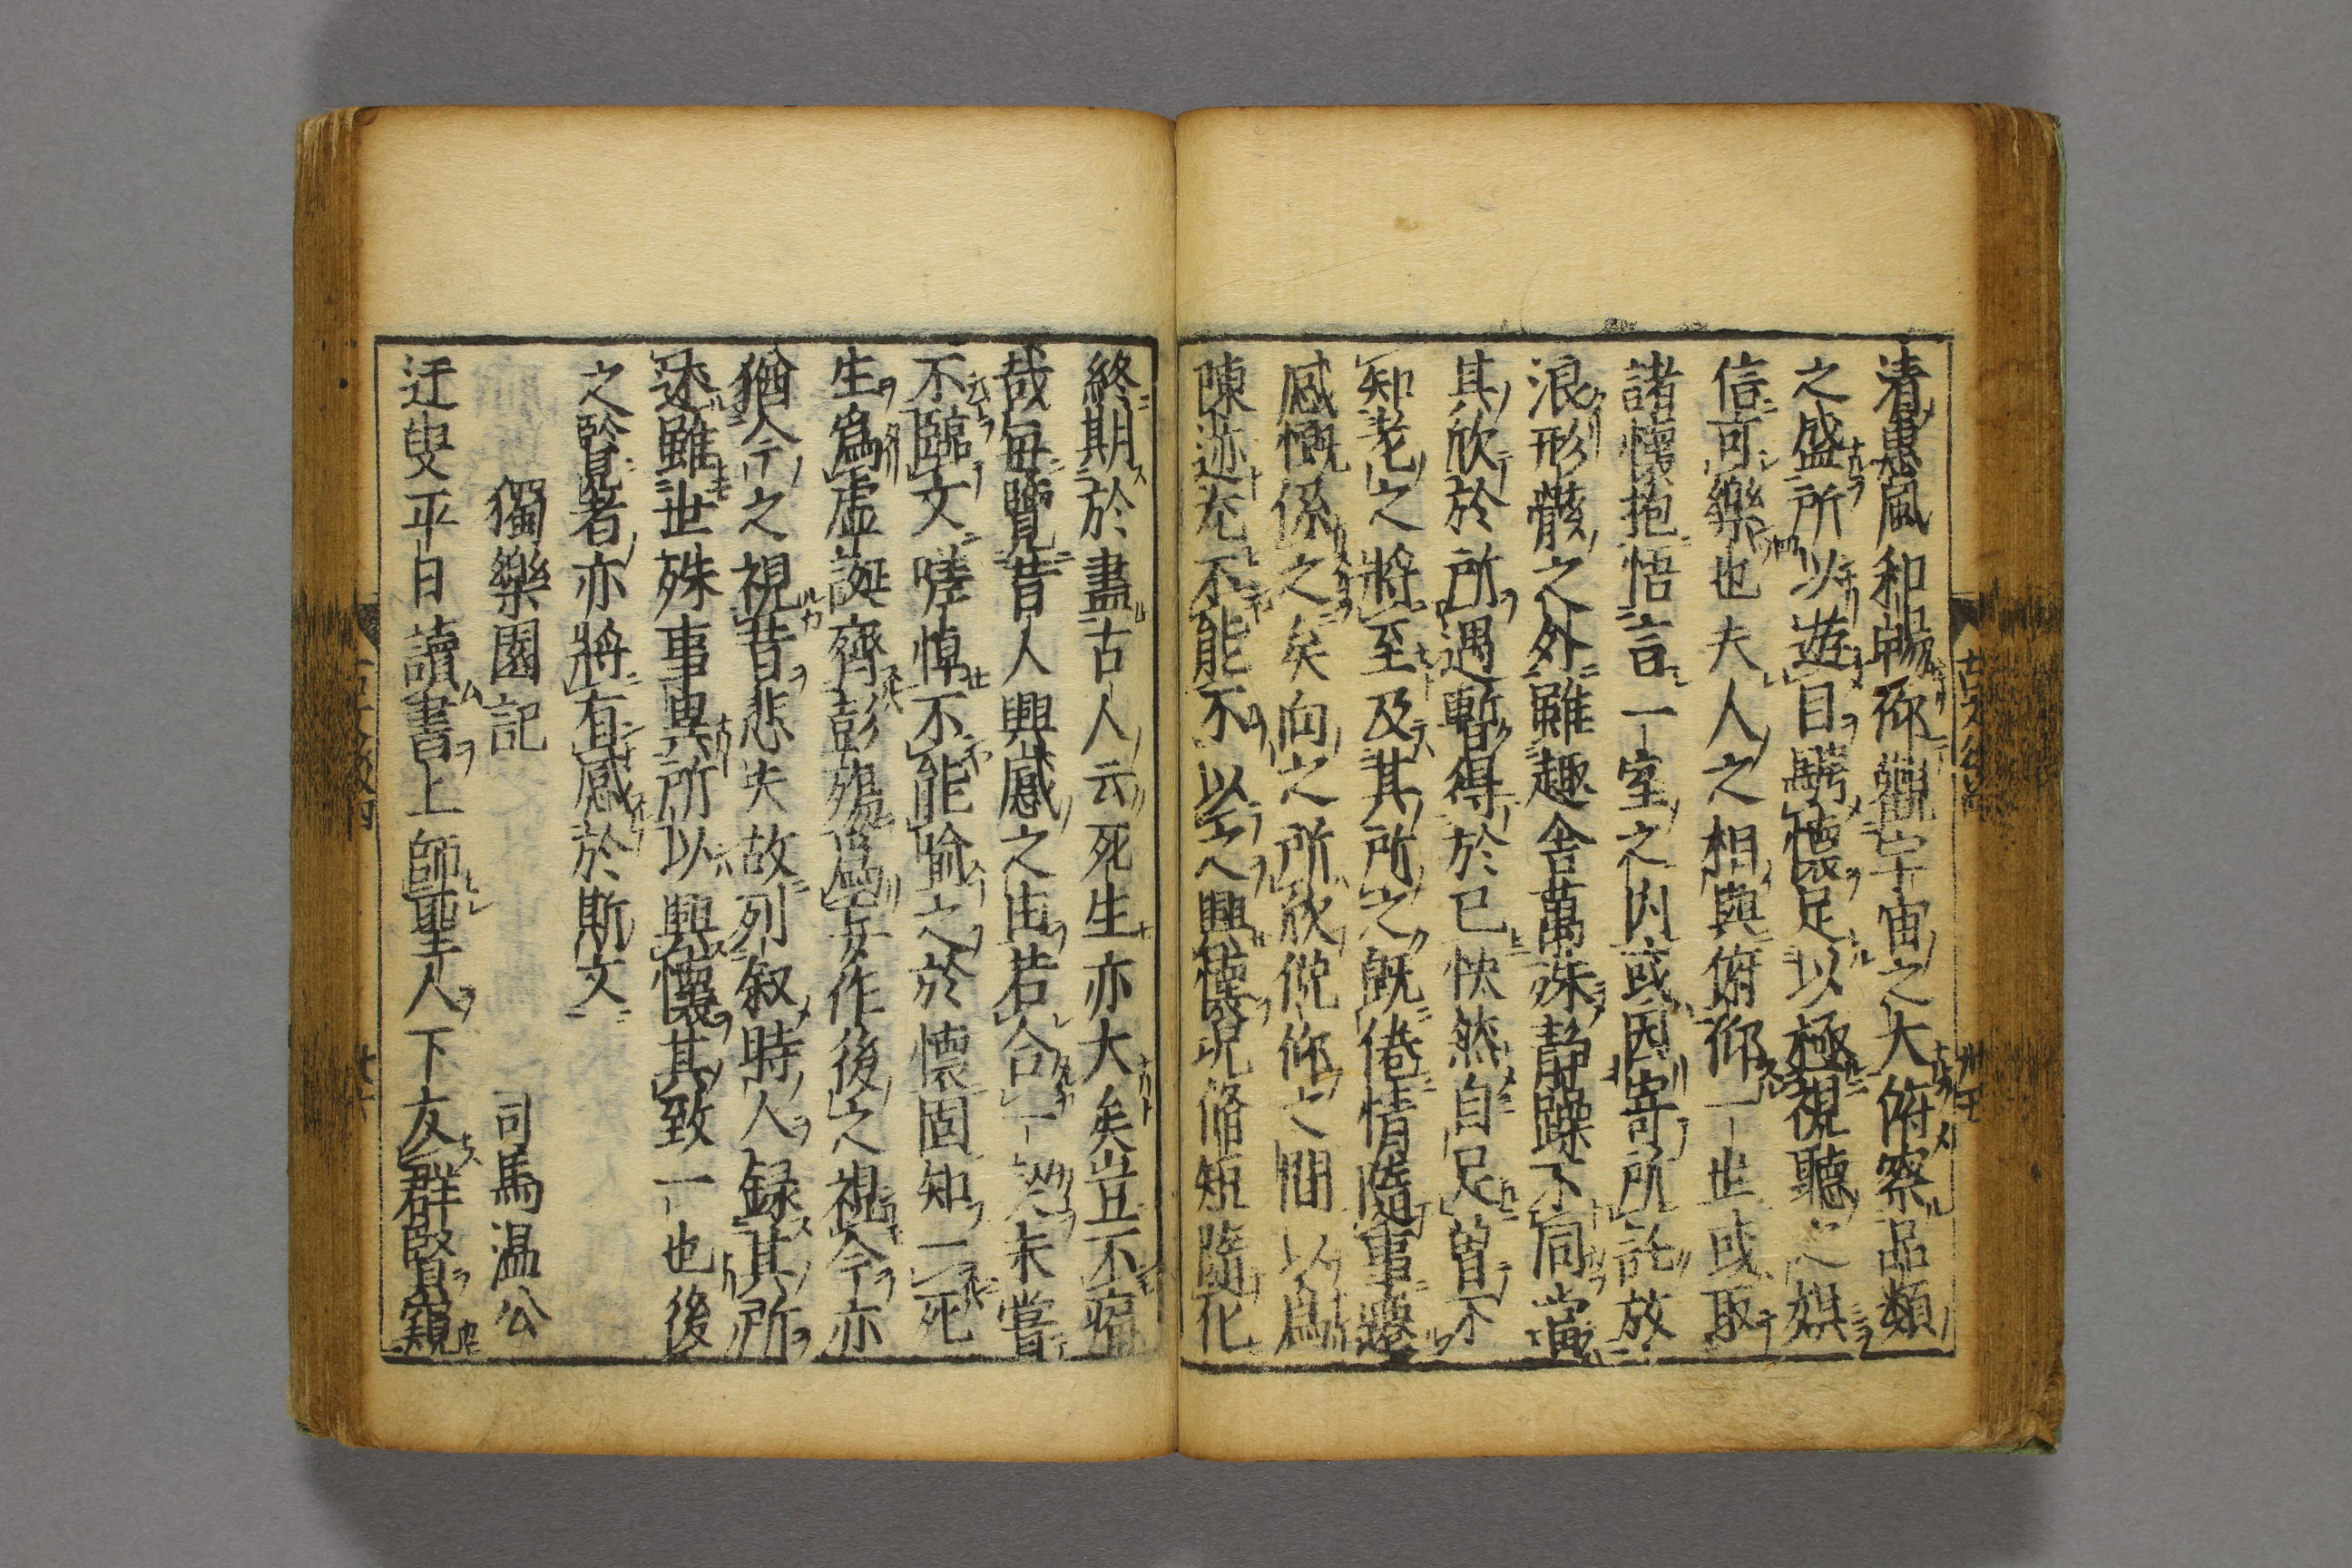 清惠風和暢仰觀宇宙之大俯察品類
之盛所以遊目騁懷足以極視聽之娯
信可樂也夫人之相與俯仰一世或取
諸懷抱悟言一室之内或因寄所託放
浪形骸之外雖趣舍萬殊静躁不同當
其欣於所遇暫得於已快然自足曽不
知老之將至及其所之既倦情隨事遷
感慨係之矣向之所欣俛仰之間以爲
陳迹尤不能不以之興懷况脩短隨化
終期於盡古人云死生亦大矣豈不痛
哉毎覽昔人興感之由若合一契未嘗
不臨文嗟悼不能喻之於懷固知一死
生爲虚誕齊彭殤爲妄作後之視今亦
猶今之視昔悲夫故列叙時人録其所
述雖世殊事異所以興懷其致一也後
之覧者亦將有感於斯文
獨樂園記 司馬温公
迂叟平日讀書上師聖人下友群賢窺